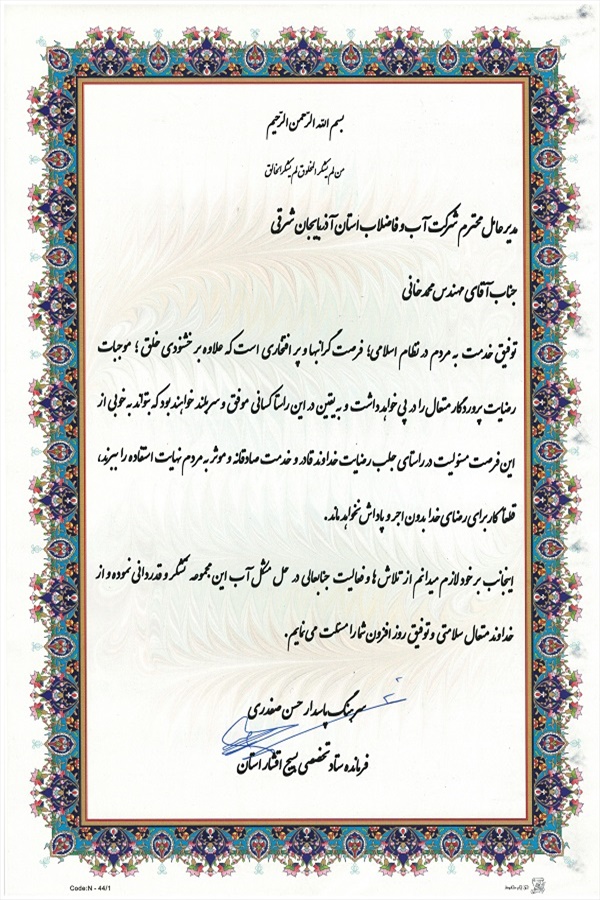 بسم الله الرحمن الرحیم
من لم یشکر المخلوق لم یشکر الخالق
مدیر عامل محترم شرکت آب و فاضلاب استان آذربایجان شرقی
جناب آقای مهندس محمد خانی
توفیق خدمت به مردم در نظام اسلامی؛ فرصت گرانبها و پر افتخاری است که علاوه بر خشنودی خلق؛ موجبات
رضایت پروردگار متعال را در پی خواهد داشت و به یقین در این راستا کسانی موفق و سربلند خواهند بود که بتواند به خوبی از
این فرصت مسئولیت در راستای جلب رضایت خداوند قادر و خدمت صادقانه و موثر به مردم نهایت استفاده را ببرند،
قطعاً کار برای رضای خدا بدون اجر و پاداش نخواهد ماند.
اینجانب بر خود لازم میدانم از تلاش ها و فعالیت جنابعالی در حل مشکل آب این مجموعه تشکر و قدردانی نموده و از
خداوند متعال سلامتی و توفیق روز افزون شما را مسئلت می نمایم.
سرهنگ پاسدار حسن صفدری
فرمانده ستاد تخصصی بسیج اقشار استان
Code:N - 44/1